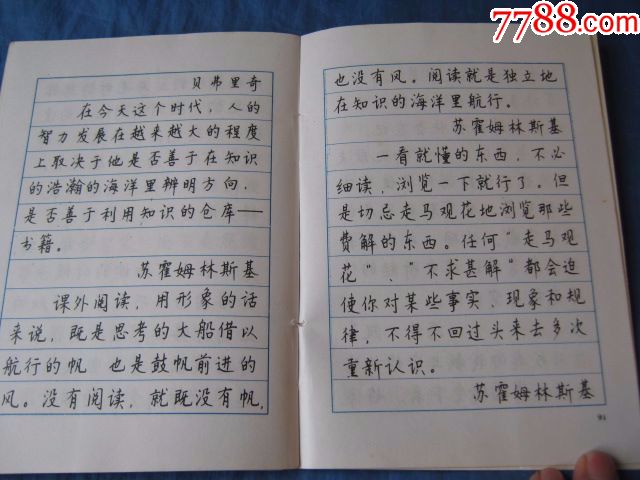 7788.com
贝弗里奇
在今天这个时代，人的
智力发展在越来越大的程度
上取决于他是否善于在知识
的浩瀚的海洋里辨明方向，
是否善于利用知识的仓库——
书籍。
苏霍姆林斯基
课外阅读，用形象的话
来说，既是思考的大船借以
航行的帆　也是鼓帆前进的
风。没有阅读，就既没有帆，
也没有风。阅读就是独立地
在知识的海洋里航行。
苏霍姆林斯基
一看就懂的东西，不必
细读，浏览一下就行了。但
是切忌走马观花地浏览那些
费解的东西。任何“走马观
花”、“不求甚解”都会迫
使你对某些事实、现象和规
律，不得不回过头来去多次
重新认识。
苏霍姆林斯基